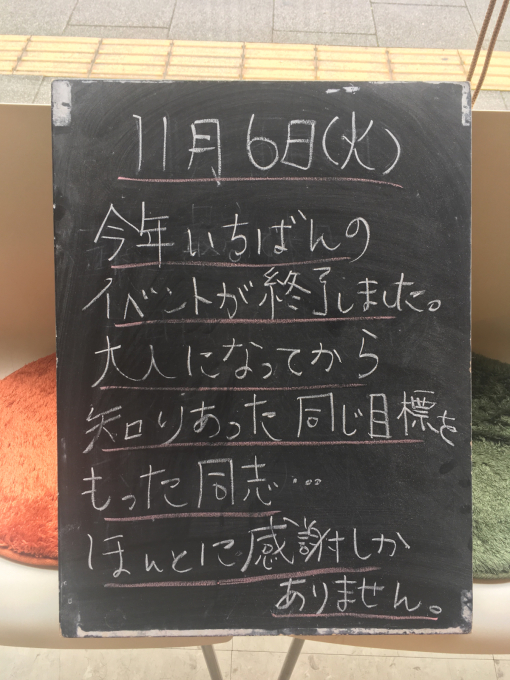 11月6日(火)
今年いちばんの
イベントが終了しました。
大人になってから
知りあった同じ目標を
もった同志…
ほんとに感謝しか
ありません。